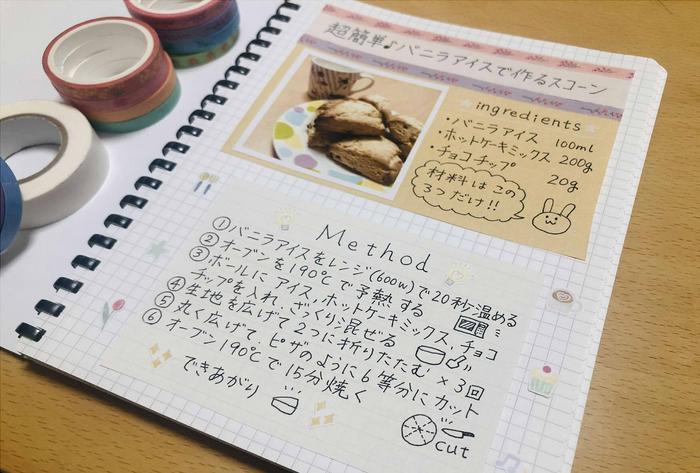 超簡単♪バニラアイスで作るスコーン
ingredients
・バニラアイス 100ml
・ホットケーキミックス 200g
・チョコチップ 20g
材料はこの
3つだけ!!
Method
①バニラアイスをレンジ(600w)で20秒温める
②オーブンを190℃で予熱する
③ボールにアイス、ホットケーキミックス、チョコ
チップを入れ、ざっくり混ぜる
④生地を広げて2つに折りたたむ×3回
⑤丸く広げて、ピザのように6等分にカット
⑥オーブン190℃で15分焼く
できあがり
cut